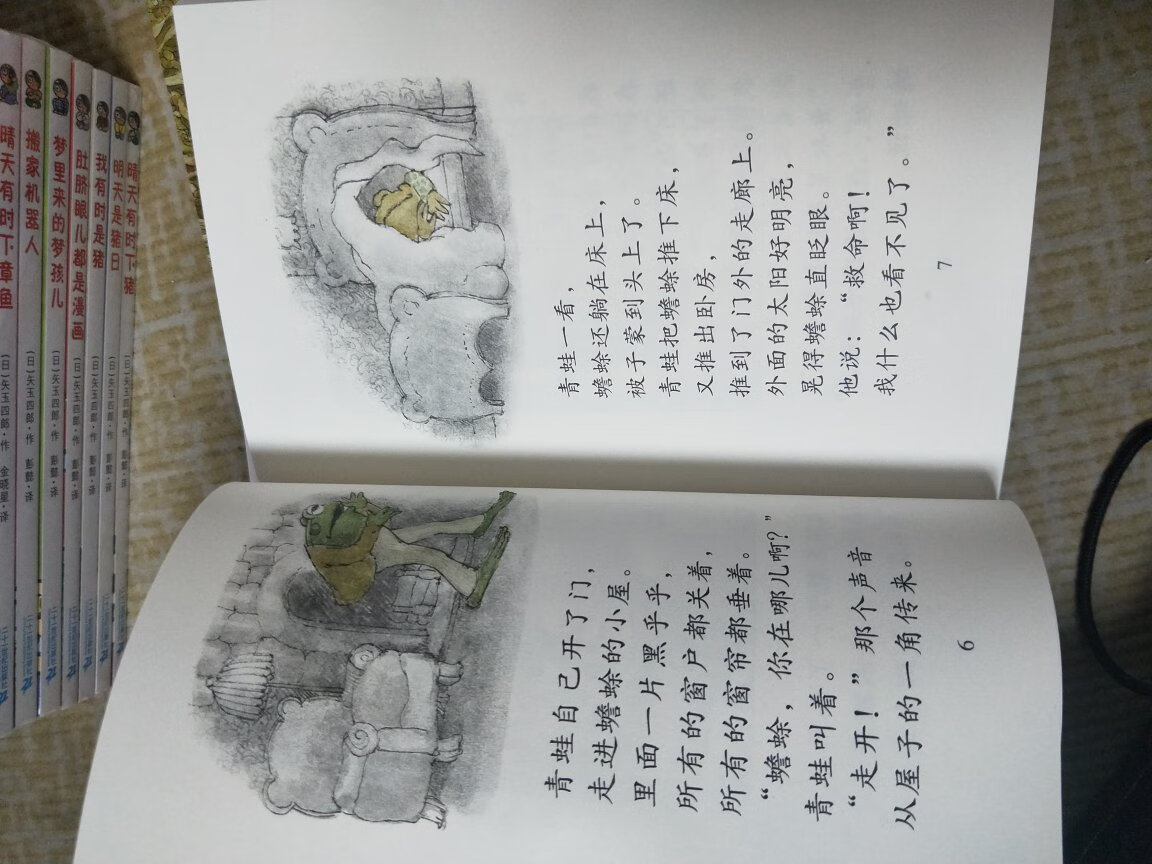 青蛙自己开了门，
走进蟾蜍的小屋。
里面一片黑乎乎，
所有的窗户都关着，
所有的窗帘都垂着。
“蟾蜍，你在哪儿啊？”
青蛙叫着。
“走开！”那个声音
从屋子的一角传来。
6
青蛙一看，
蟾蜍还躺在床上，
被子蒙到头上了。
青蛙把蟾蜍推下床，
又推出卧房，
推到了门外的走廊上。
外面的太阳好明亮，
晃得蟾蜍直眨眼。
他说：“救命啊！
我什么也看不见了。”
7
晴天有时下章鱼 〔日〕矢玉四郎·作 金晓星·译
搬家机器人 〔日〕矢玉四郎·作 彭懿·译
梦里来的梦孩儿 〔日〕矢玉四郎·作 彭懿·译
肚脐眼儿都是漫画 〔日〕矢玉四郎·作 彭懿·译
我有时是猪 〔日〕矢玉四郎·作 彭懿·译
明天是猪日 〔日〕矢玉四郎·作 彭懿·译
晴天有时下猪 〔日〕矢玉四郎·作 彭懿·译